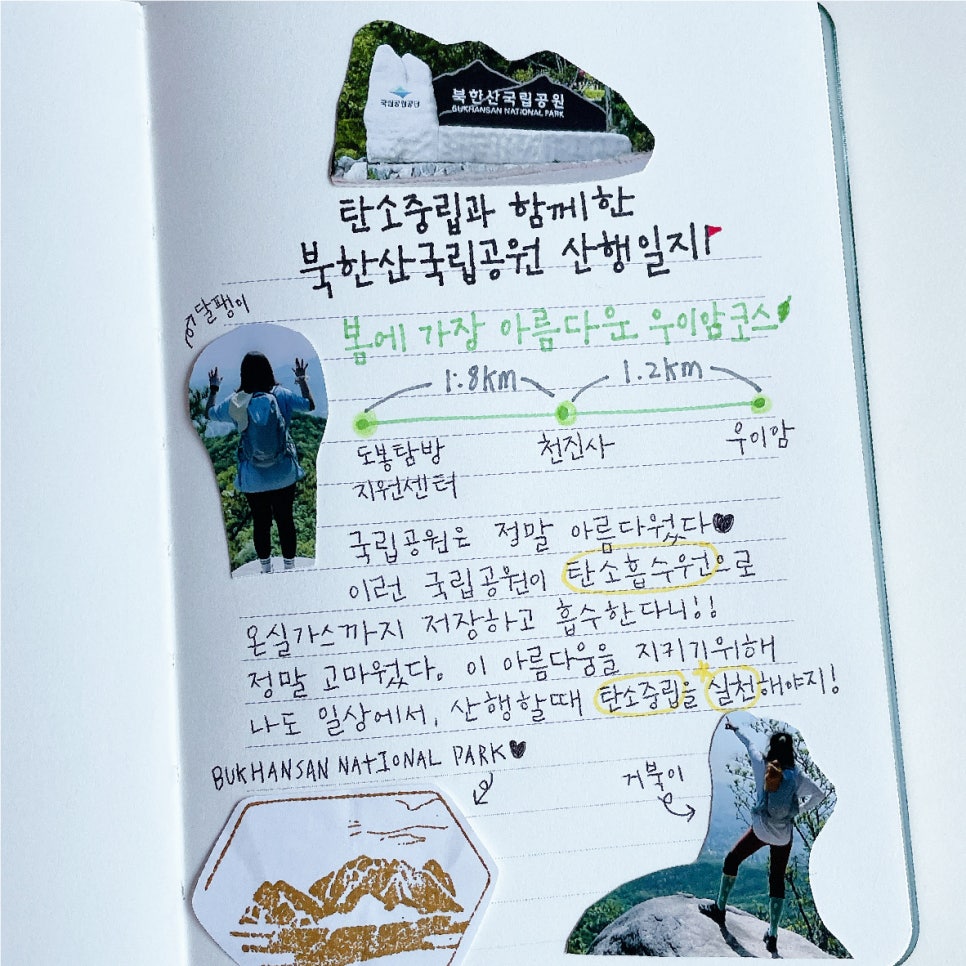 국립공원공단
북한산국립공원
BUKHANSAN NATIONAL PARK
탄소중립과 함께한
북한산국립공원 산행일지
달팽이
봄에 가장 아름다운 우이암코스
1.8km
1.2km
도봉탐방
지원센터
천진사
우이암
국립공원은 정말 아름다웠다
이런 국립공원이 탄소흡수원으로
온실가스까지 저장하고 흡수한다니!!
정말 고마웠다. 이 아름다움을 지키기위해
나도 일상에서, 산행할때 탄소중립을 실천해야지!
BUKHANSAN NATIONAL PARK
거북이